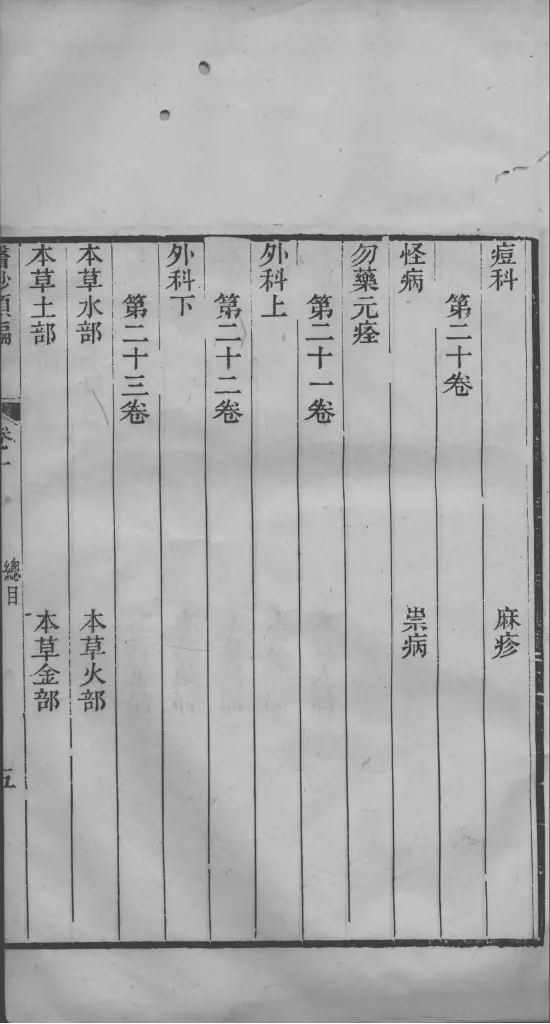 痘科　麻疹
第二十卷
怪病　祟病
勿藥元詮
第二十一卷
外科上
第二十二卷
外科下
第二十三卷
本草水部　本草火部
本草土部　本草金部
總目　五